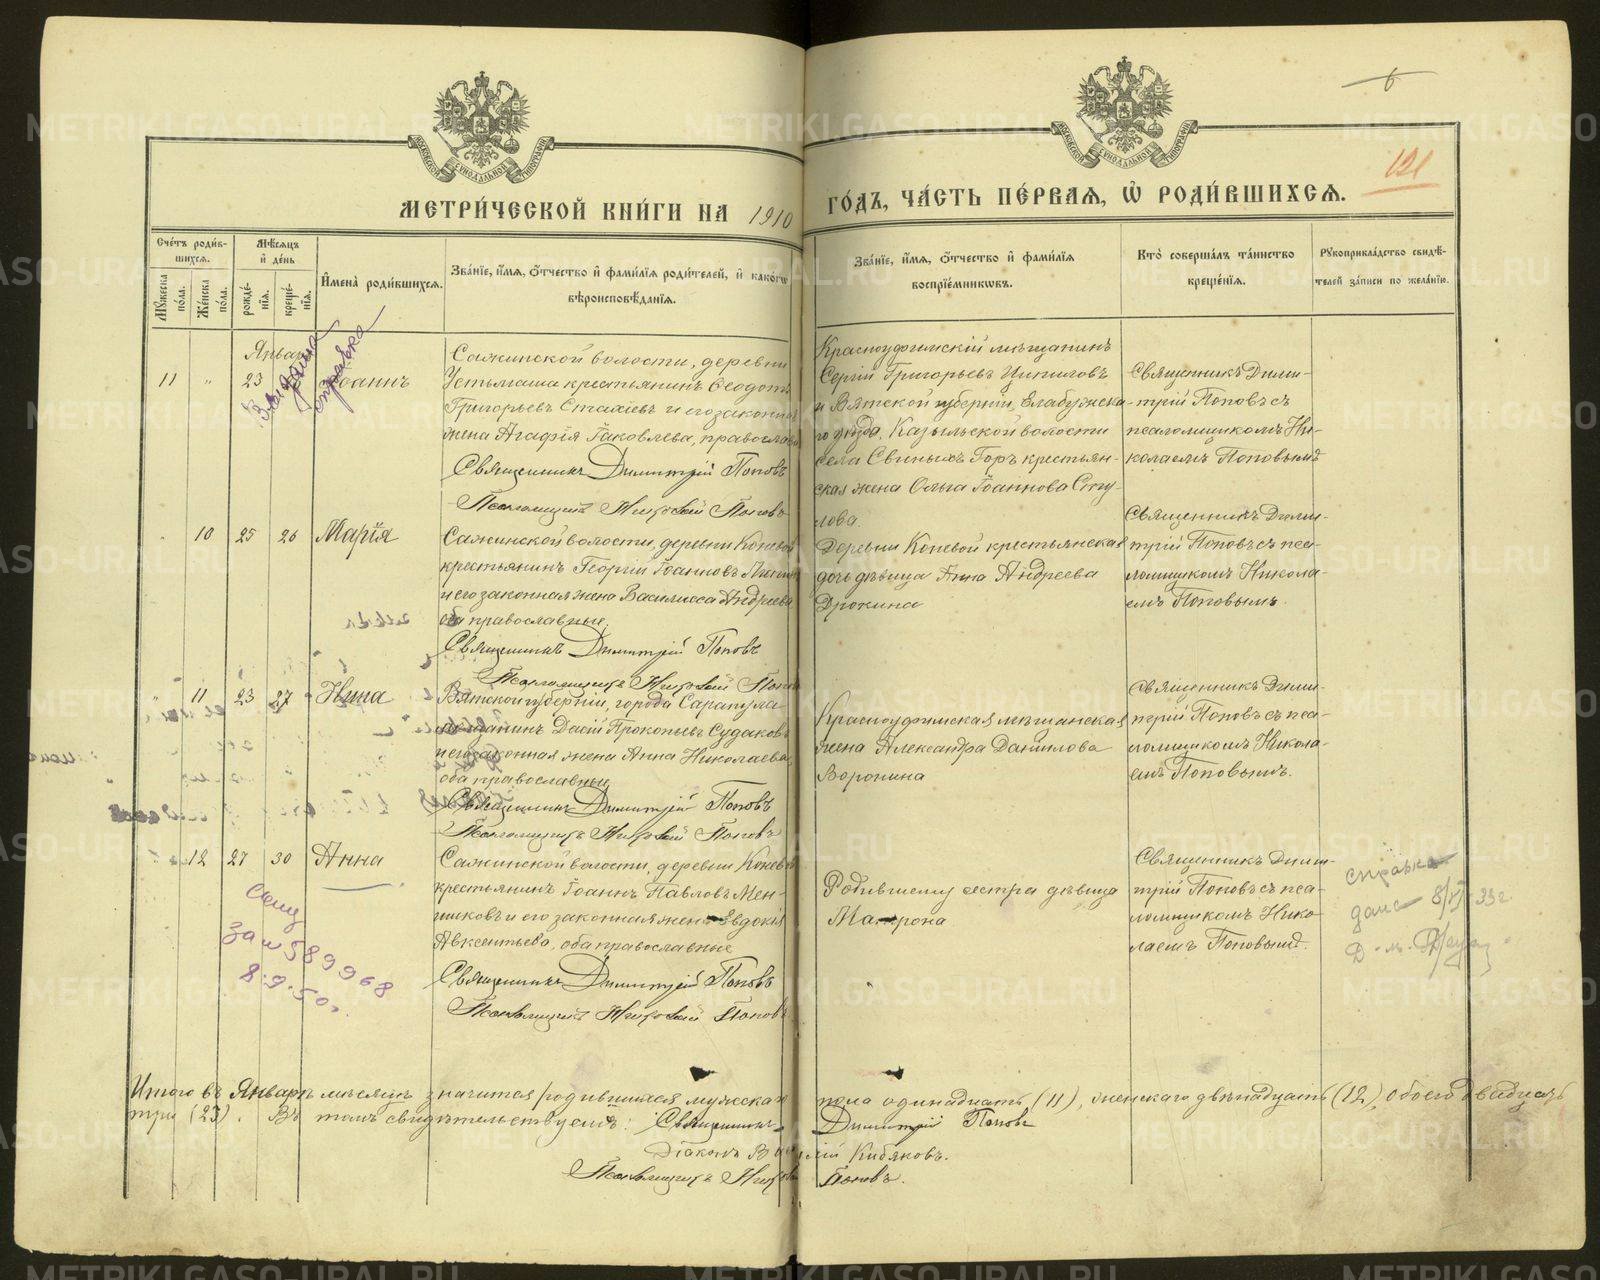 6
121
МЕТРИ́ЧЕСКОЙ КНИ́ГИ НА 1910 ГО́ДЪ, ЧА́СТЬ ПЕ́РВАЯ, Ѡ РОДИ́ВШИХСЯ.
Сче́тъ роди́вшихся.
Му́жеска по́ла.
Же́нска по́ла.
Мѣ́сяцъ и де́нь
рожде́нїя.
креще́нїя.
Имена̀ роди́вшихся.
Зва́нїе, и́мя, о́тчество и фами́лїя роди́телей, и како́гѡ вѣроисповѣ́данїя.
Зва́нїе, и́мя, о́тчество и фами́лїя воспрїе́мниковъ.
Кто̀ соверша́лъ та́инство креще́нїя.
Рукоприкла́дство свидѣ́телей за́писи по жела́нїю.
Январь
Выдана справка
11 " 23 Іоаннъ
Сажинской волости, деревни
Устьмаша крестьянинъ Ѳеодотъ
Григорьевъ Стахіевъ и его законная
жена Агафія Іаковлева, православн
Священникъ Димитрій Поповъ
Псаломщикъ Николай Поповъ
Красноуфимскій мѣщанинъ
Сергій Григорьевъ Ципиловъ
и Вятской губерніи, Елабужска-
го уѣзда, Казыльской волости
села Свиныхъ Горъ крестьян-
ская жена Ольга Іоаннова Сту-
лова.
Священникъ Дими-
трій Поповъ съ
псаломщикомъ Ни-
колаемъ Поповымъ
10 25 26 Марія
Сажинской волости, деревни Коневой
крестьянинъ Георгій Іоанновъ
и его законная жена Василисса Андреева,
оба православные.
Священникъ Димитрій Поповъ
Псаломщикъ Николай Поповъ
Деревни Коневой крестьянская
дочь дѣвица Анна Андреева
Дрокина
Священникъ Дими-
трій Поповъ съ пса-
ломщикомъ Никола-
емъ Поповымъ.
" 11 23 27 Нина
Вятской губерніи, города Сарапула
мѣщанинъ Дасій Прокопьевъ Судаковъ
и его законная жена Анна Николаева,
оба православные
Священникъ Димитрій Поповъ
Псаломщикъ Николай Поповъ
Красноуфимская мѣщанская
жена Александра Данилова
Воронина
Священникъ Дими-
трій Поповъ съ пса-
ломщикомъ Никола-
емъ Поповымъ.
12 27 30 Анна
Сажинской волости, деревни Коневой
крестьянинъ Іоаннъ Павловъ Мен-
шиковъ и его законная жена Евдокія
Авксентьева, оба православные
Священникъ Димитрій Поповъ
Псаломщикъ Николай Поповъ
Родившему сестра дѣвица
Матрона
Священникъ Дими-
трій Поповъ съ пса-
ломщикомъ Нико-
лаемъ Поповымъ.
справка
дана 8/VI 33 г.
589968
8.9.50 г.
Итого въ Январѣ мѣсяцѣ значится родившихся мужскаго пола одинадцать (11), женскаго двѣнадцать (12), обоего двадцать
три (23). Въ томъ свидѣтельствуемъ: Священникъ Димитрій Поповъ
Діаконъ Василій Кибяковъ.
Псаломщикъ Николай Поповъ.
METRIKI.GASO-URAL.RU